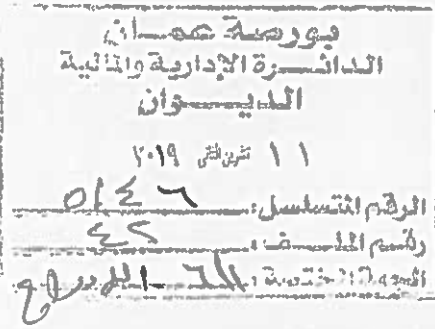 بورصة عمان
الدائرة الإدارية والمالية
الديوان
١١ تشرين الثاني ٢٠١٩
الرقم المتسلسل: ٥١٤٦
رقم الملف: ٤٢
الجهة المختصة: